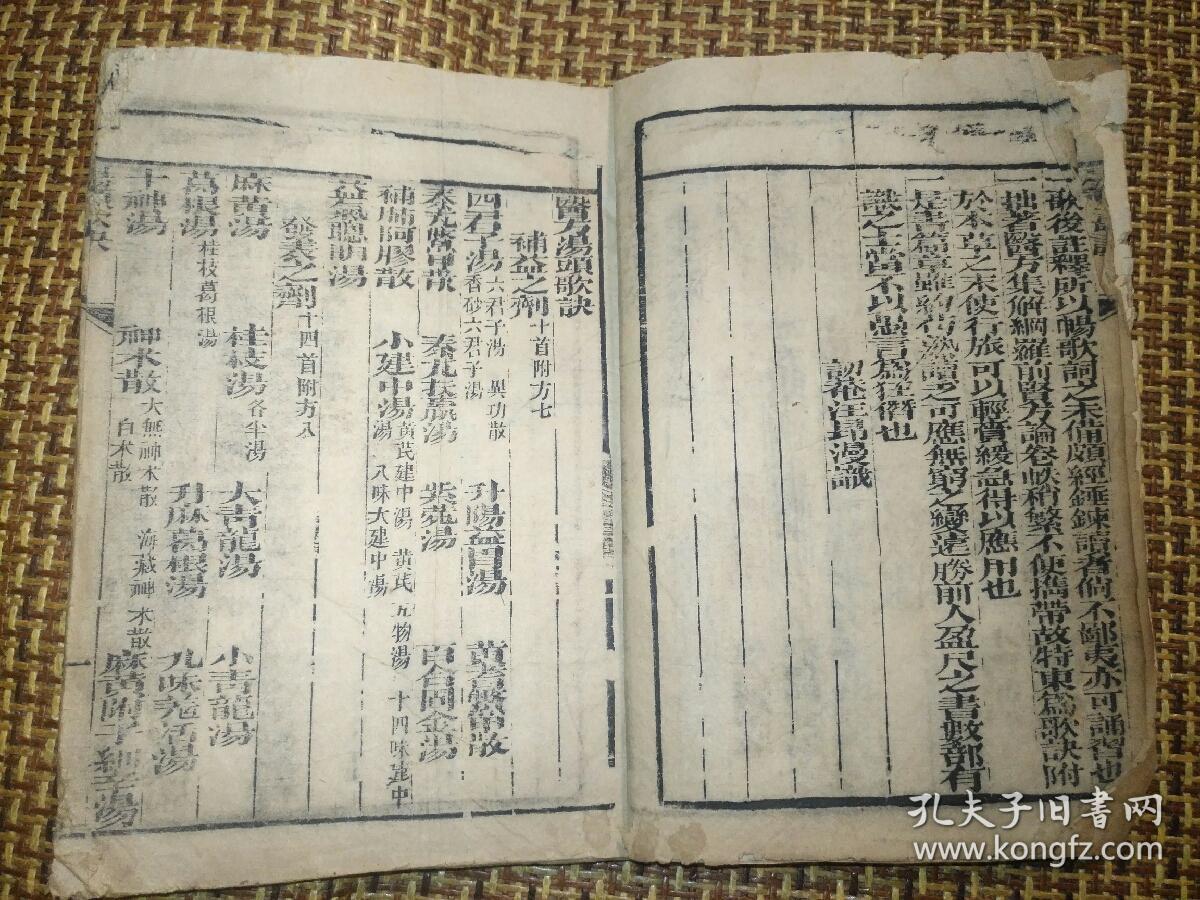 歌後註釋所以暢歌詞之未備頗經錘鍊讀者倘不鄙夷亦可誦習也
一拙著醫方集解網羅前賢方論卷帙稍繁不便攜帶故特束爲歌訣附
於本草之末使行旅可以輕賫緩急得以應用也
一是書篇章雖約古熟讀之可應無窮之變遠勝前人盈尺之書數部有
識之士當不以愚言爲狂僭也
訒菴汪昂漫識
醫方湯頭歌訣
補益之劑十首附方七
四君子湯六君子湯 異功散 香砂六君子湯 升陽益胃湯 黃耆鱉甲散
秦艽鱉甲散 秦艽扶羸湯 紫菀湯 百合固金湯
補肺阿膠散 小建中湯黃芪建中湯 黃芪五物湯 十四味建中湯 八味大建中湯
益氣聰明湯
發表之劑十四首附方八
麻黃湯 桂枝湯各半湯 大青龍湯 小青龍湯
葛根湯桂枝葛根湯 升麻葛根湯 九味羌活湯
十神湯 神朮散太無神朮散 海藏神朮散 白朮散 麻黃附子細辛湯
孔夫子旧书网
www.kongfz.com